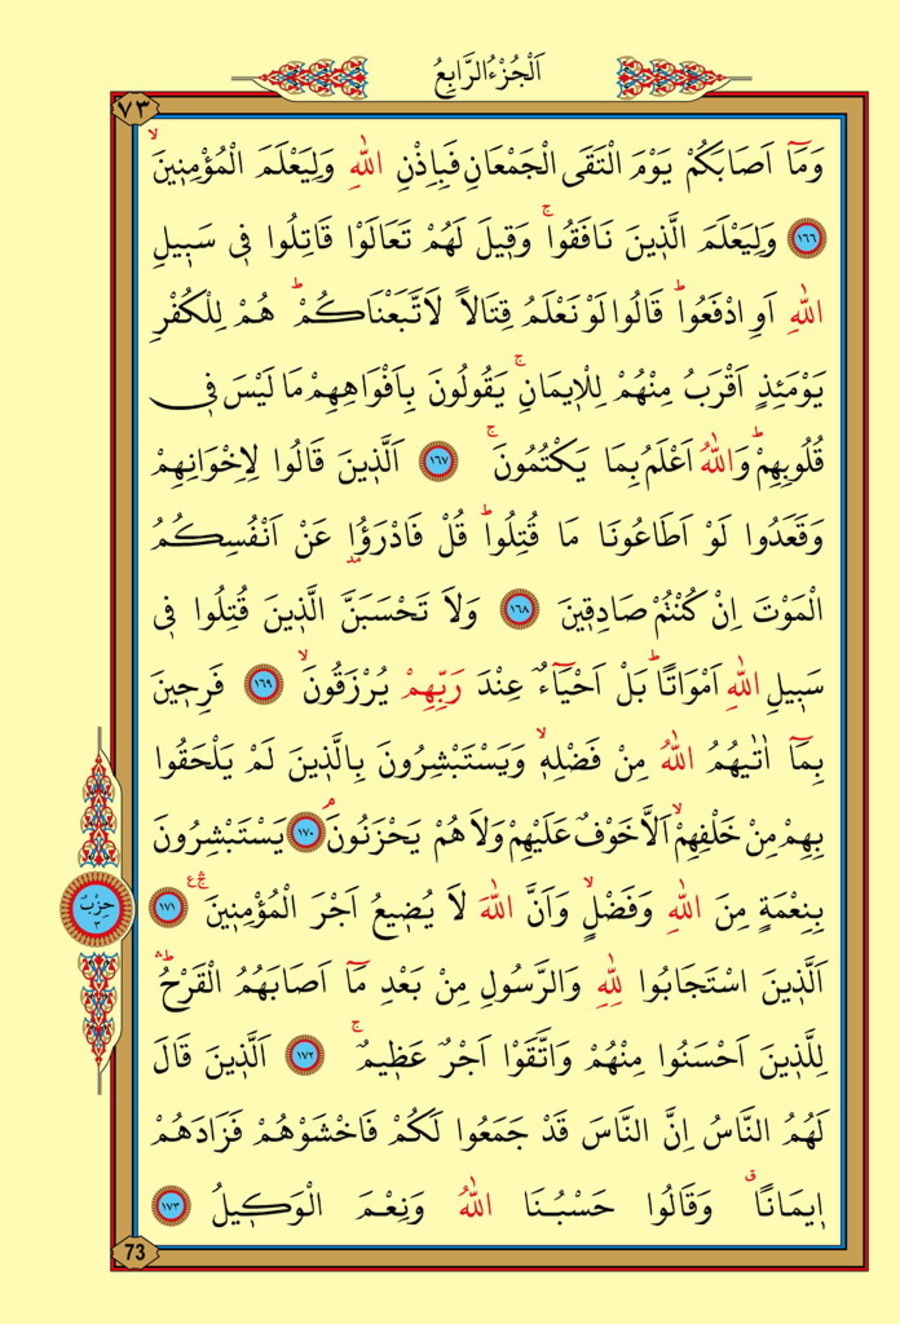 اَلْجُزْءُ الرَّابِعُ
٧٣
وَمَٓا اَصَابَكُمْ يَوْمَ الْتَقَى الْجَمْعَانِ فَبِاِذْنِ اللّٰهِ وَلِيَعْلَمَ الْمُؤْمِن۪ينَۙ
١٦٦ وَلِيَعْلَمَ الَّذ۪ينَ نَافَقُواۚ وَق۪يلَ لَهُمْ تَعَالَوْا قَاتِلُوا ف۪ي سَب۪يلِ
اللّٰهِ اَوِ ادْفَعُواۜ قَالُوا لَوْ نَعْلَمُ قِتَالاً لَاتَّبَعْنَاكُمْۜ هُمْ لِلْكُفْرِ
يَوْمَئِذٍ اَقْرَبُ مِنْهُمْ لِلْا۪يمَانِۚ يَقُولُونَ بِاَفْوَاهِهِمْ مَا لَيْسَ ف۪ي
قُلُوبِهِمْۜ وَاللّٰهُ اَعْلَمُ بِمَا يَكْتُمُونَۚ ١٦٧ اَلَّذ۪ينَ قَالُوا لِاِخْوَانِهِمْ
وَقَعَدُوا لَوْ اَطَاعُونَا مَا قُتِلُواۜ قُلْ فَادْرَؤُ۫ا عَنْ اَنْفُسِكُمُ
الْمَوْتَ اِنْ كُنْتُمْ صَادِق۪ينَ ١٦٨ وَلَا تَحْسَبَنَّ الَّذ۪ينَ قُتِلُوا ف۪ي
سَب۪يلِ اللّٰهِ اَمْوَاتًاۜ بَلْ اَحْيَٓاءٌ عِنْدَ رَبِّهِمْ يُرْزَقُونَۙ ١٦٩ فَرِح۪ينَ
بِمَٓا اٰتٰيهُمُ اللّٰهُ مِنْ فَضْلِه۪ۙ وَيَسْتَبْشِرُونَ بِالَّذ۪ينَ لَمْ يَلْحَقُوا
بِهِمْ مِنْ خَلْفِهِمْۙ اَلَّا خَوْفٌ عَلَيْهِمْ وَلَا هُمْ يَحْزَنُونَۢ ١٧٠ يَسْتَبْشِرُونَ
بِنِعْمَةٍ مِنَ اللّٰهِ وَفَضْلٍۙ وَاَنَّ اللّٰهَ لَا يُض۪يعُ اَجْرَ الْمُؤْمِن۪ينَۚۛ ع ١٧١
حِزْبٌ
٣
اَلَّذ۪ينَ اسْتَجَابُوا لِلّٰهِ وَالرَّسُولِ مِنْ بَعْدِ مَٓا اَصَابَهُمُ الْقَرْحُۜۛ
لِلَّذ۪ينَ اَحْسَنُوا مِنْهُمْ وَاتَّقَوْا اَجْرٌ عَظ۪يمٌۚ ١٧٢ اَلَّذ۪ينَ قَالَ
لَهُمُ النَّاسُ اِنَّ النَّاسَ قَدْ جَمَعُوا لَكُمْ فَاخْشَوْهُمْ فَزَادَهُمْ
ا۪يمَانًاۗ وَقَالُوا حَسْبُنَا اللّٰهُ وَنِعْمَ الْوَك۪يلُ ١٧٣
73